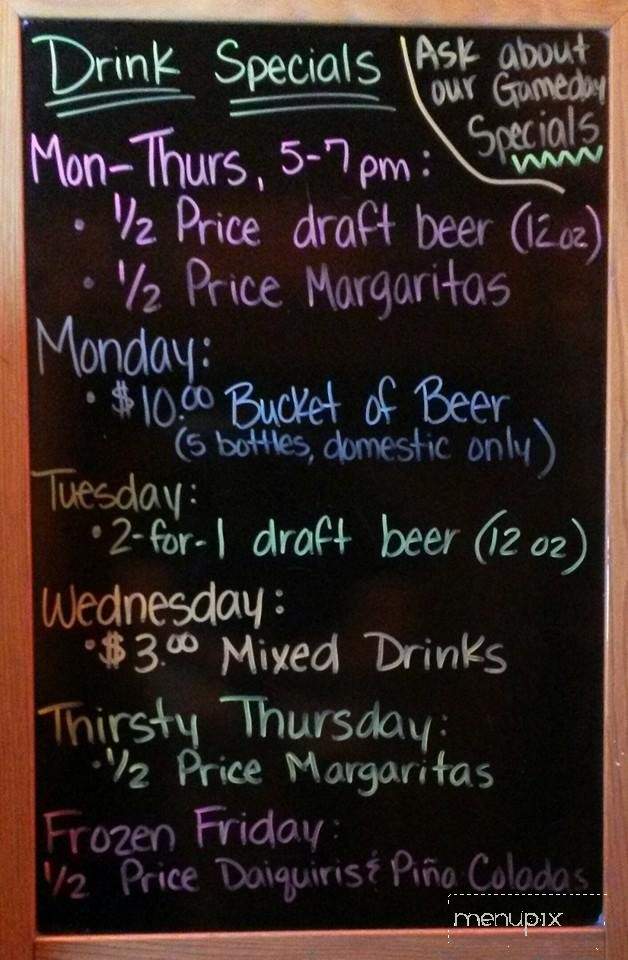 Drink Specials
Ask about
our Gameday
Specials
Mon-Thurs, 5-7pm:
• 1/2 Price draft beer (12oz)
• 1/2 Price Margaritas
Monday:
• $10.00 Bucket of Beer
(5 bottles, domestic only)
Tuesday:
• 2-for-1 draft beer (12 oz)
Wednesday:
• $3.00 Mixed Drinks
Thirsty Thursday:
• 1/2 Price Margaritas
Frozen Friday:
1/2 Price Daiquiris & Piña Coladas
menupix